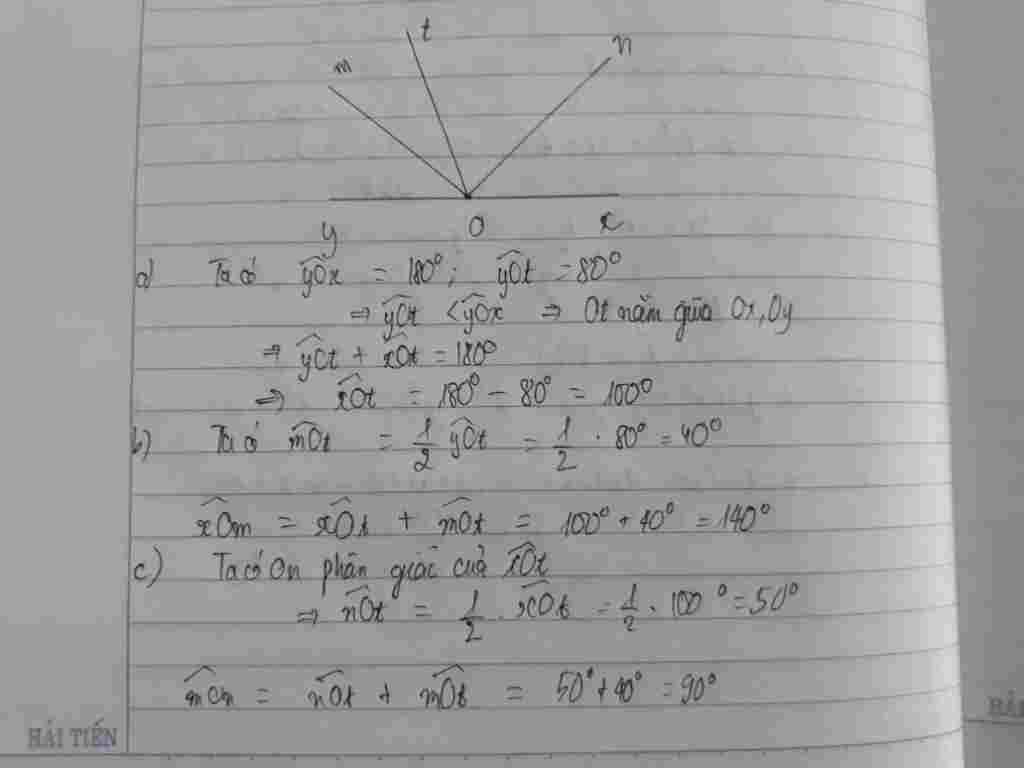 t
n
m
y O x
a) Ta có yOx = 180°; yOt = 80°
⇒ yOt < yOx ⇒ Ot nằm giữa Ox, Oy
⇒ yOt + xOt = 180°
⇒ xOt = 180° - 80° = 100°
b) Ta có mOt = 1/2 yOt = 1/2 . 80° = 40°
xOm = xOt + mOt = 100° + 40° = 140°
c) Ta có On phân giác của xOt
⇒ nOt = 1/2 . xOt = 1/2 . 100° = 50°
mOn = nOt + mOt = 50° + 40° = 90°
HẢI TIẾN